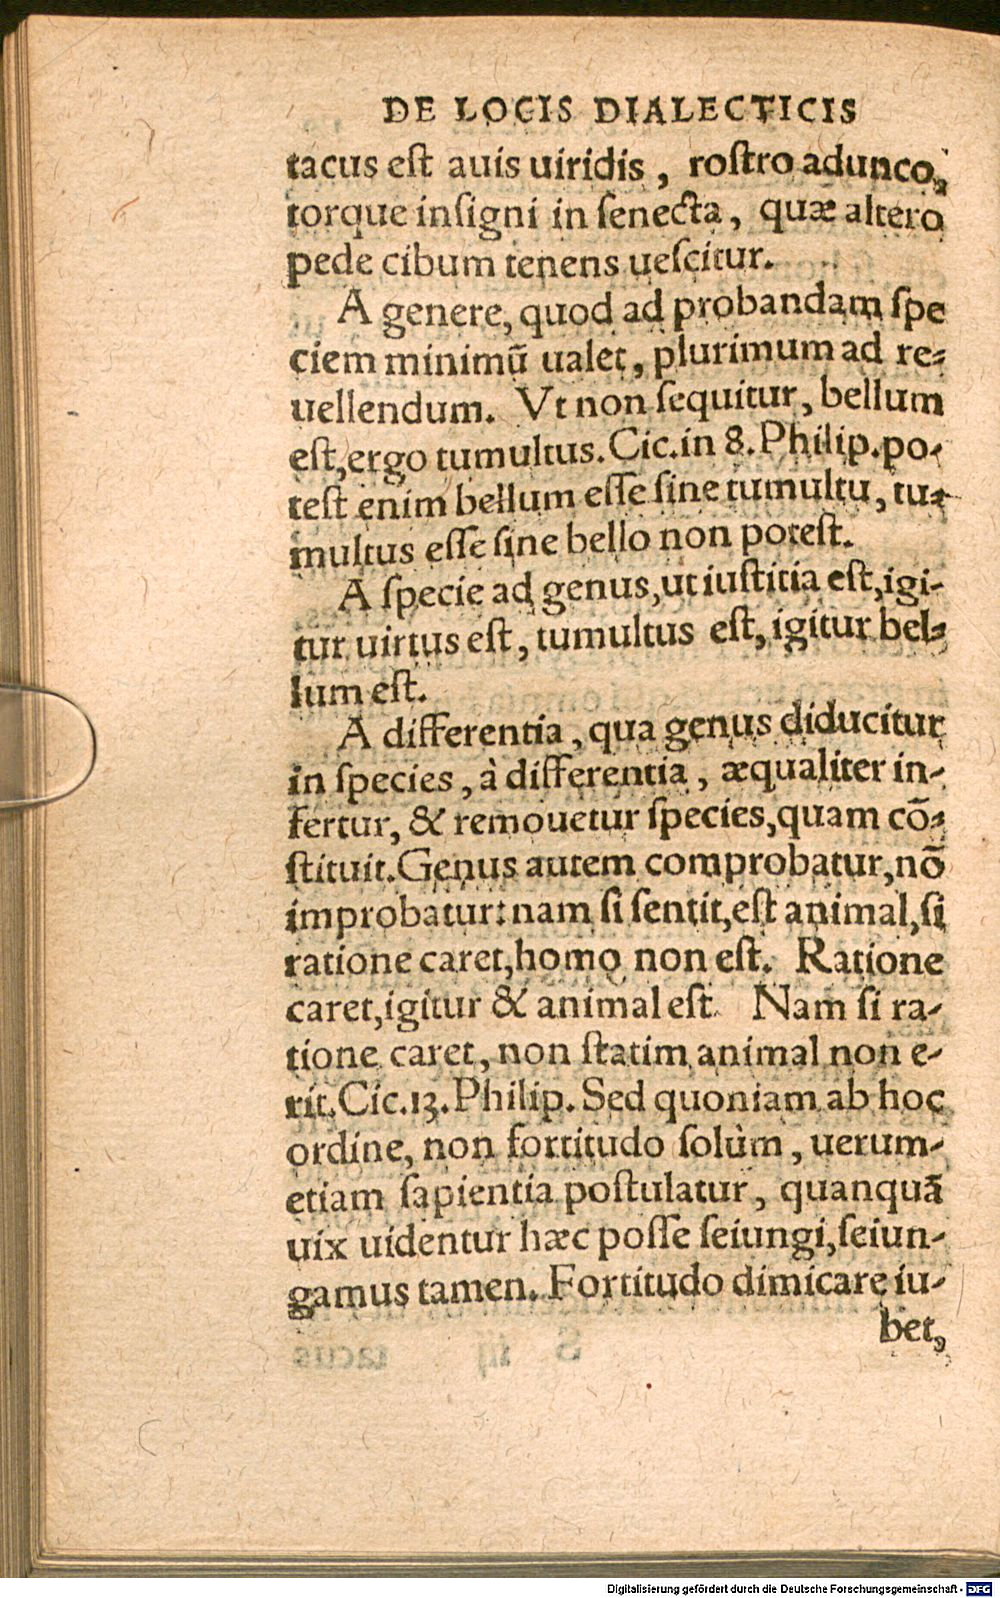 DE LOCIS DIALECTICIS
tacus eſt auis uiridis, roſtro adunco,
torque inſigni in ſenecta, quæ altero
pede cibum tenens ueſcitur.
A genere, quod ad probandam ſpe
ciem minimū ualet, plurimum ad re-
uellendum. Vt non ſequitur, bellum
eſt, ergo tumultus. Cic. in 8. Philip. po-
teſt enim bellum eſſe ſine tumultu, tu-
multus eſſe ſine bello non poteſt.
A ſpecie ad genus, ut iuſtitia eſt, igi-
tur uirtus eſt, tumultus eſt, igitur bel-
lum eſt.
A differentia, qua genus diducitur
in ſpecies, à differentia, æqualiter in-
fertur, & remouetur ſpecies, quam cō-
ſtituit. Genus autem comprobatur, nō
improbatur: nam ſi ſentit, eſt animal, ſi
ratione caret, homo non eſt. Ratione
caret, igitur & animal eſt Nam ſi ra-
tione caret, non ſtatim animal non e-
rit. Cic. 13. Philip. Sed quoniam ab hoc
ordine, non fortitudo ſolùm, uerum-
etiam ſapientia poſtulatur, quanquā
uix uidentur hæc poſſe ſeiungi, ſeiun-
gamus tamen. Fortitudo dimicare iu-
bet,
Digitalisierung gefördert durch die Deutsche Forschungsgemeinschaft - DFG